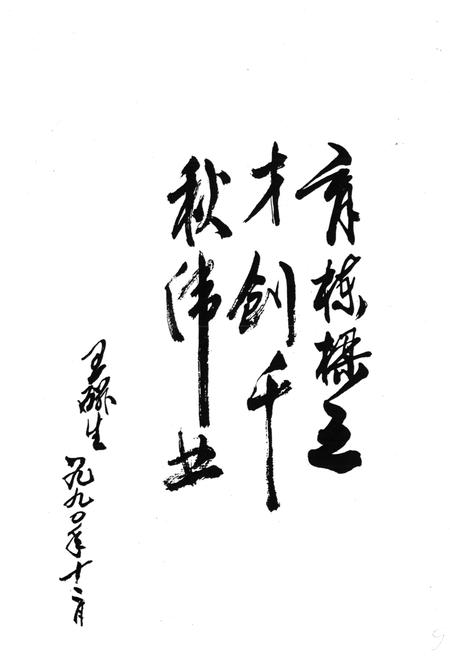 育栋梁之
才创千
秋伟业
王酥生
一九九〇年十二月
9